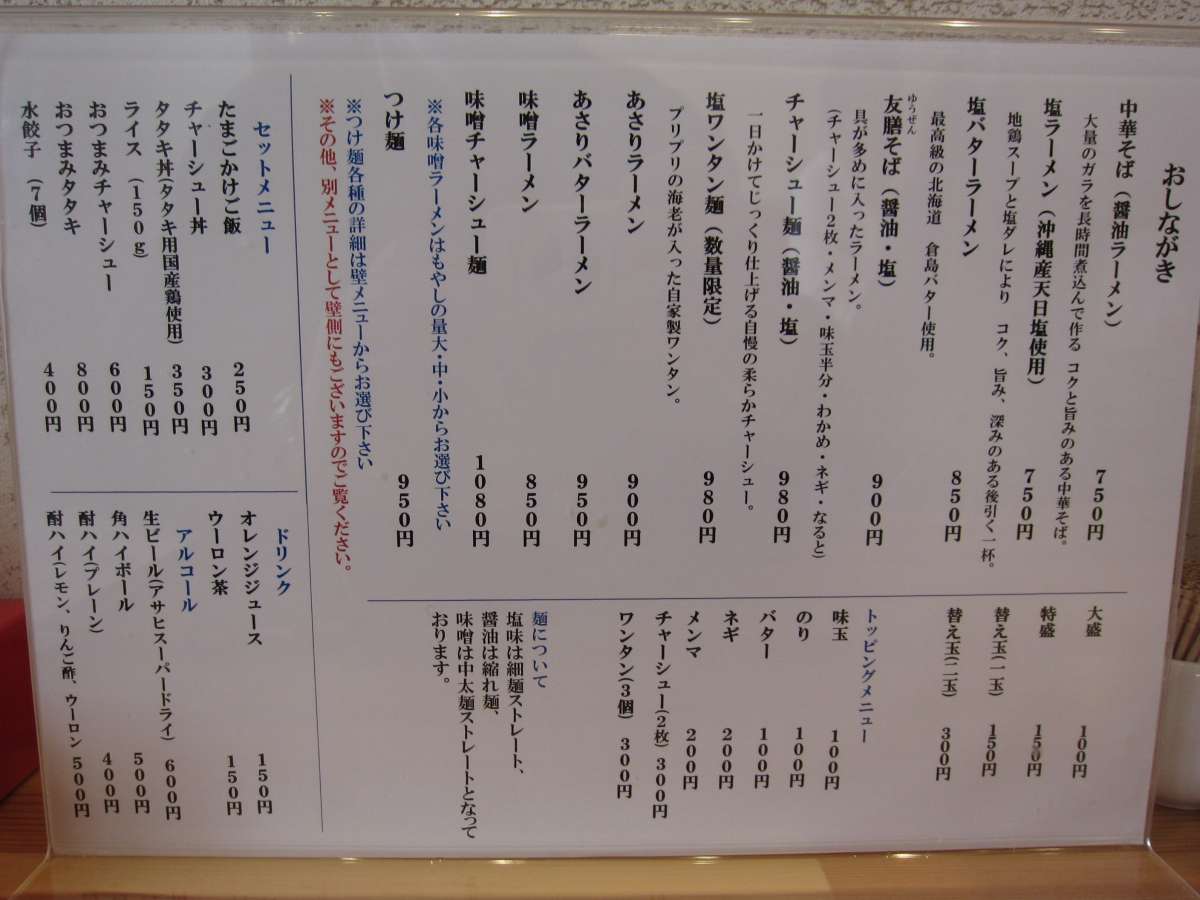 おしながき
中華そば（醤油ラーメン） 750円
大量のガラを長時間煮込んで作る コクと旨みのある中華そば。
塩ラーメン（沖縄産天日塩使用） 750円
地鶏スープと塩ダレにより コク、旨み、深みのある後引く一杯。
塩バターラーメン 850円
最高級の北海道 倉島バター使用。
ゆうぜん
友膳そば（醤油・塩） 900円
具が多めに入ったラーメン。
（チャーシュー2枚・メンマ・味玉半分・わかめ・ネギ・なると）
チャーシュー麺（醤油・塩） 980円
一日かけてじっくり仕上げる自慢の柔らかチャーシュー。
塩ワンタン麺（数量限定） 980円
プリプリの海老が入った自家製ワンタン。
あさりラーメン 900円
あさりバターラーメン 950円
味噌ラーメン 850円
味噌チャーシュー麺 1080円
※各味噌ラーメンはもやしの量大・中・小からお選び下さい
つけ麺 950円
※つけ麺各種の詳細は壁メニューからお選び下さい
※その他、別メニューとして壁側にもございますのでご覧ください。
大盛 100円
特盛 150円
替え玉（一玉） 150円
替え玉（二玉） 300円
トッピングメニュー
味玉 100円
のり 100円
バター 100円
ネギ 200円
メンマ 200円
チャーシュー（2枚） 300円
ワンタン（3個） 300円
麺について
塩味は細麺ストレート、
醤油は縮れ麺、
味噌は中太麺ストレートとなって
おります。
セットメニュー
たまごかけご飯 250円
チャーシュー丼 300円
タタキ丼（タタキ用国産鶏使用） 350円
ライス （150g） 150円
おつまみチャーシュー 600円
おつまみタタキ 800円
水餃子 （7個） 400円
ドリンク
オレンジジュース 150円
ウーロン茶 150円
アルコール
生ビール（アサヒスーパードライ） 600円
角ハイボール 500円
酎ハイ（プレーン） 400円
酎ハイ（レモン、りんご酢、ウーロン 500円